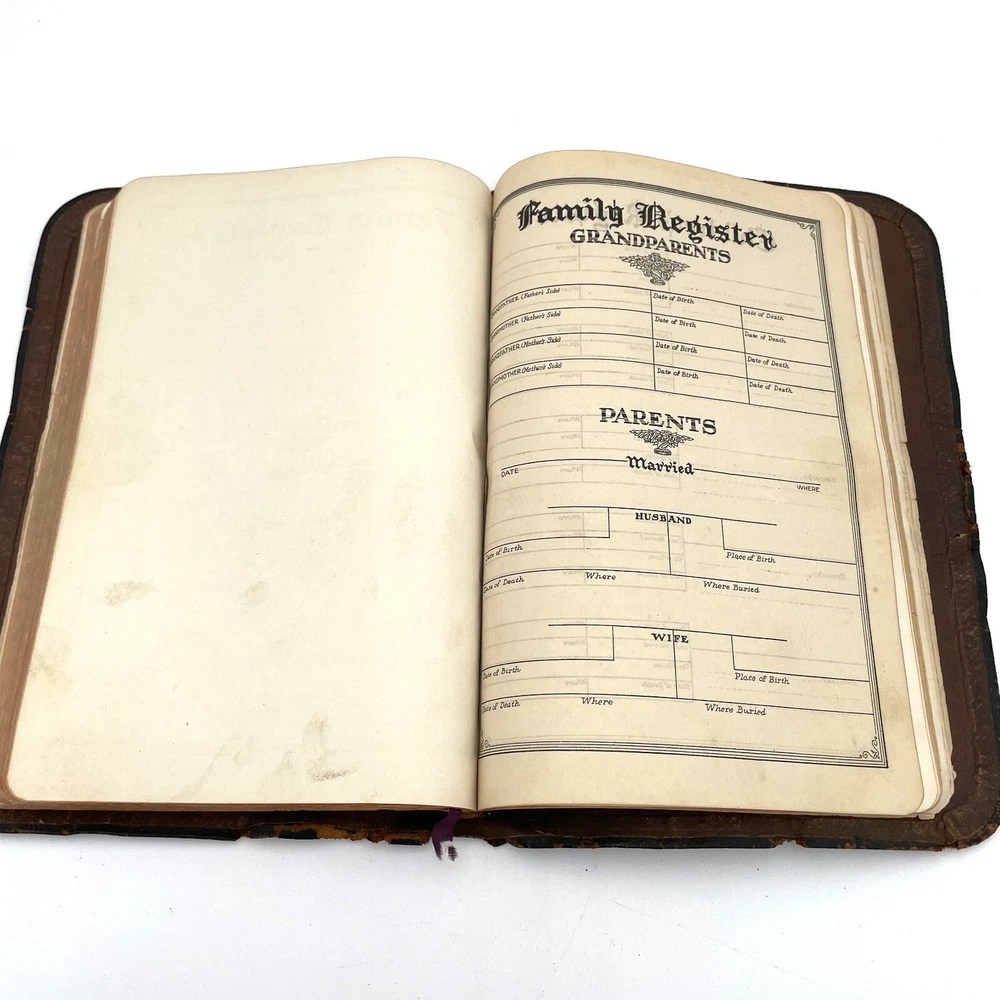 Family Register
GRANDPARENTS
(Father's Side) Date of Birth Date of Death
(Father's Side) Date of Birth Date of Death
(Mother's Side) Date of Birth Date of Death
(Mother's Side) Date of Birth Date of Death
PARENTS
DATE Married WHERE
HUSBAND
Date of Birth Place of Birth
Date of Death Where Where Buried
WIFE
Date of Birth Place of Birth
Date of Death Where Where Buried